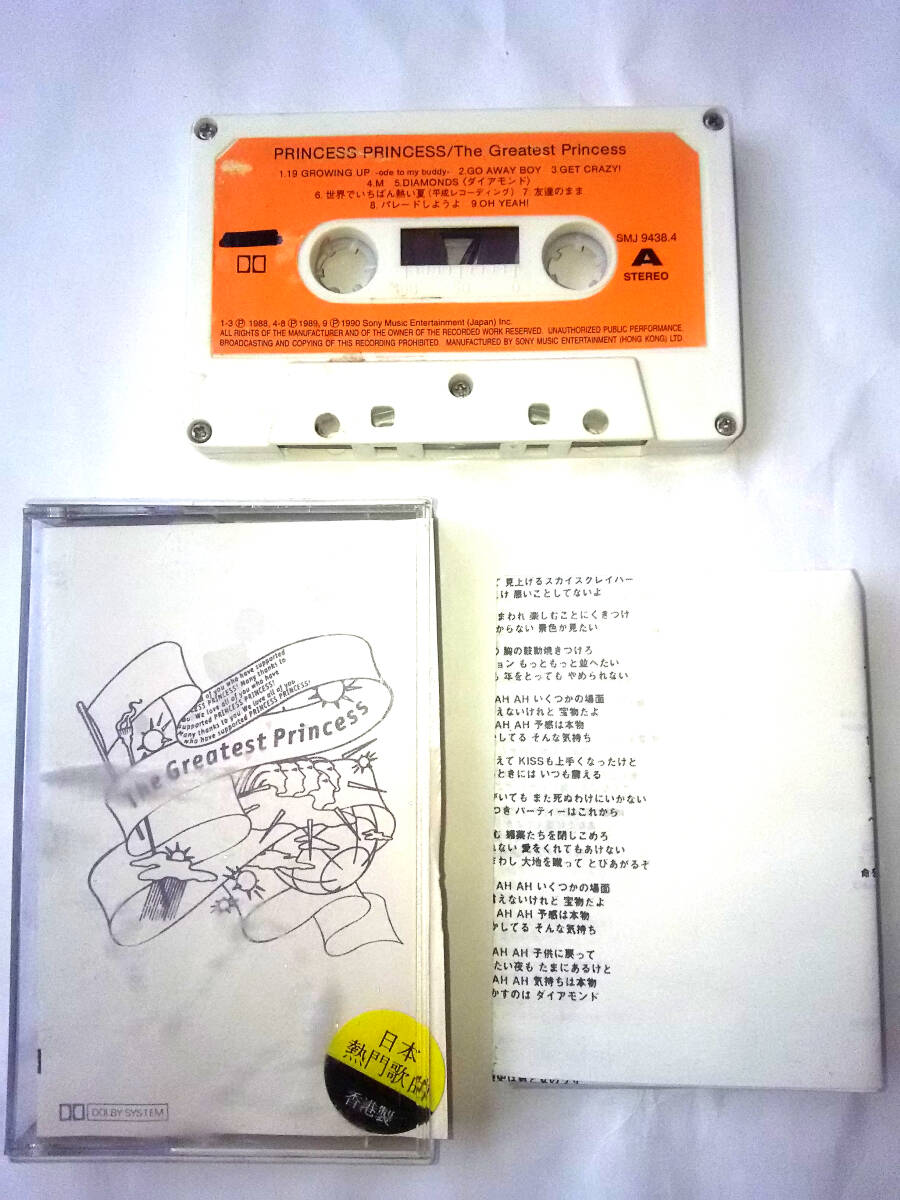 PRINCESS PRINCESS/The Greatest Princess
1.19 GROWING UP -ode to my buddy- 2.GO AWAY BOY 3.GET CRAZY!
4.M 5.DIAMONDS〈ダイアモンド〉
6. 世界でいちばん熱い夏(平成レコーディング) 7. 友達のまま
8. パレードしようよ 9.OH YEAH!
SMJ 9438.4
A
STEREO
1-3 Ⓟ 1988, 4-8 Ⓟ 1989, 9 Ⓟ 1990 Sony Music Entertainment (Japan) Inc.
ALL RIGHTS OF THE MANUFACTURER AND OF THE OWNER OF THE RECORDED WORK RESERVED. UNAUTHORIZED PUBLIC PERFORMANCE,
BROADCASTING AND COPYING OF THIS RECORDING PROHIBITED. MANUFACTURED BY SONY MUSIC ENTERTAINMENT (HONG KONG) LTD
of you who have supported
PRINCESS! Many thanks to
you. We love all of you who have
supported PRINCESS PRINCESS!
Many thanks to you. We love all of you
who have supported PRINCESS PRINCESS!
The Greatest Princess
日本
熱門歌
香港製
DOLBY SYSTEM
て 見上げるスカイスクレイパー
け 悪いことしてないよ
まわれ 楽しむことにくぎつけ
からない 景色が見たい
胸の鼓動焼きつけろ
ション もっともっと並べたい
も 年をとっても やめられない
AH AH いくつかの場面
えないけれど 宝物だよ
AH AH 予感は本物
してる そんな気持ち
えて KISSも上手くなったけど
ときには いつも震える
がいても まだ死ぬわけにいかない
つき パーティーはこれから
む 媚薬たちを閉じこめろ
ない 愛をくれてもあけない
まわし 大地を蹴って とびあがるぞ
AH AH いくつかの場面
言えないけれど 宝物だよ
AH AH 予感は本物
かしてる そんな気持ち
AH AH 子供に戻って
たい夜も たまにあるけど
AH AH 気持ちは本物
かすのは ダイアモンド